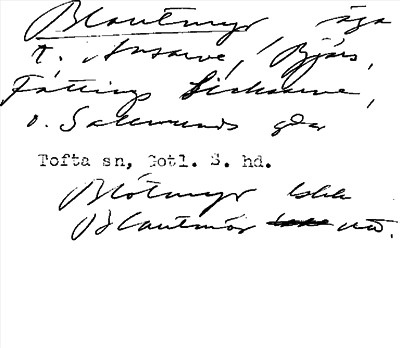 Blautmyr äga
t. Ansarve, Bjärs,
Fättings Liskarve,
o. Salmunds gdar
Tofta sn, Gotl. S. hd.
Blötmyr
Blautmör